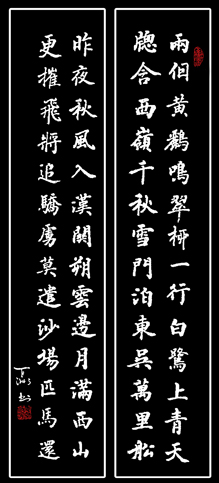 兩個黃鸝鳴翠柳一行白鷺上青天
牕含西嶺千秋雪門泊東吳萬里船
昨夜秋風入漢關朔雲邊月滿西山
更摧飛將追驕虜莫遣沙場匹馬還